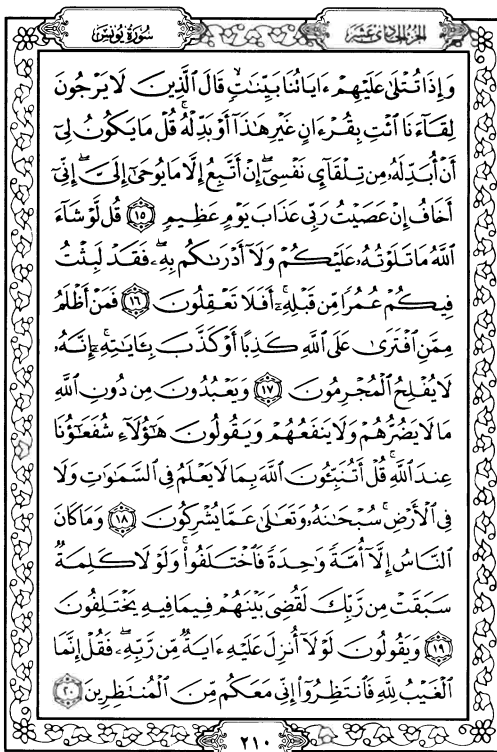 سُورَةُ يُونُسَ
الجُزْءُ الحَادِي عَشَرَ
وَإِذَا تُتْلَىٰ عَلَيْهِمْ ءَايَاتُنَا بَيِّنَٰتٍۙ قَالَ ٱلَّذِينَ لَا يَرْجُونَ
لِقَآءَنَا ٱئْتِ بِقُرْءَانٍ غَيْرِ هَٰذَآ أَوْ بَدِّلْهُۚ قُلْ مَا يَكُونُ لِىٓ
أَنْ أُبَدِّلَهُۥ مِن تِلْقَآئِ نَفْسِىٓۖ إِنْ أَتَّبِعُ إِلَّا مَا يُوحَىٰٓ إِلَىَّۖ إِنِّىٓ
أَخَافُ إِنْ عَصَيْتُ رَبِّى عَذَابَ يَوْمٍ عَظِيمٍ ١٥ قُل لَّوْ شَآءَ
ٱللَّهُ مَا تَلَوْتُهُۥ عَلَيْكُمْ وَلَآ أَدْرَىٰكُم بِهِۦۖ فَقَدْ لَبِثْتُ
فِيكُمْ عُمُرًا مِّن قَبْلِهِۦٓۚ أَفَلَا تَعْقِلُونَ ١٦ فَمَنْ أَظْلَمُ
مِمَّنِ ٱفْتَرَىٰ عَلَى ٱللَّهِ كَذِبًا أَوْ كَذَّبَ بِـَٔايَٰتِهِۦٓۚ إِنَّهُۥ
لَا يُفْلِحُ ٱلْمُجْرِمُونَ ١٧ وَيَعْبُدُونَ مِن دُونِ ٱللَّهِ
مَا لَا يَضُرُّهُمْ وَلَا يَنفَعُهُمْ وَيَقُولُونَ هَٰٓؤُلَآءِ شُفَعَٰٓؤُنَا
عِندَ ٱللَّهِۚ قُلْ أَتُنَبِّـُٔونَ ٱللَّهَ بِمَا لَا يَعْلَمُ فِى ٱلسَّمَٰوَٰتِ وَلَا
فِى ٱلْأَرْضِۚ سُبْحَٰنَهُۥ وَتَعَٰلَىٰ عَمَّا يُشْرِكُونَ ١٨ وَمَا كَانَ
ٱلنَّاسُ إِلَّآ أُمَّةً وَٰحِدَةً فَٱخْتَلَفُوا۟ۚ وَلَوْلَا كَلِمَةٌ
سَبَقَتْ مِن رَّبِّكَ لَقُضِىَ بَيْنَهُمْ فِيمَا فِيهِ يَخْتَلِفُونَ
١٩ وَيَقُولُونَ لَوْلَآ أُنزِلَ عَلَيْهِ ءَايَةٌ مِّن رَّبِّهِۦۖ فَقُلْ إِنَّمَا
ٱلْغَيْبُ لِلَّهِ فَٱنتَظِرُوٓا۟ إِنِّى مَعَكُم مِّنَ ٱلْمُنتَظِرِينَ ٢٠
٢١٠